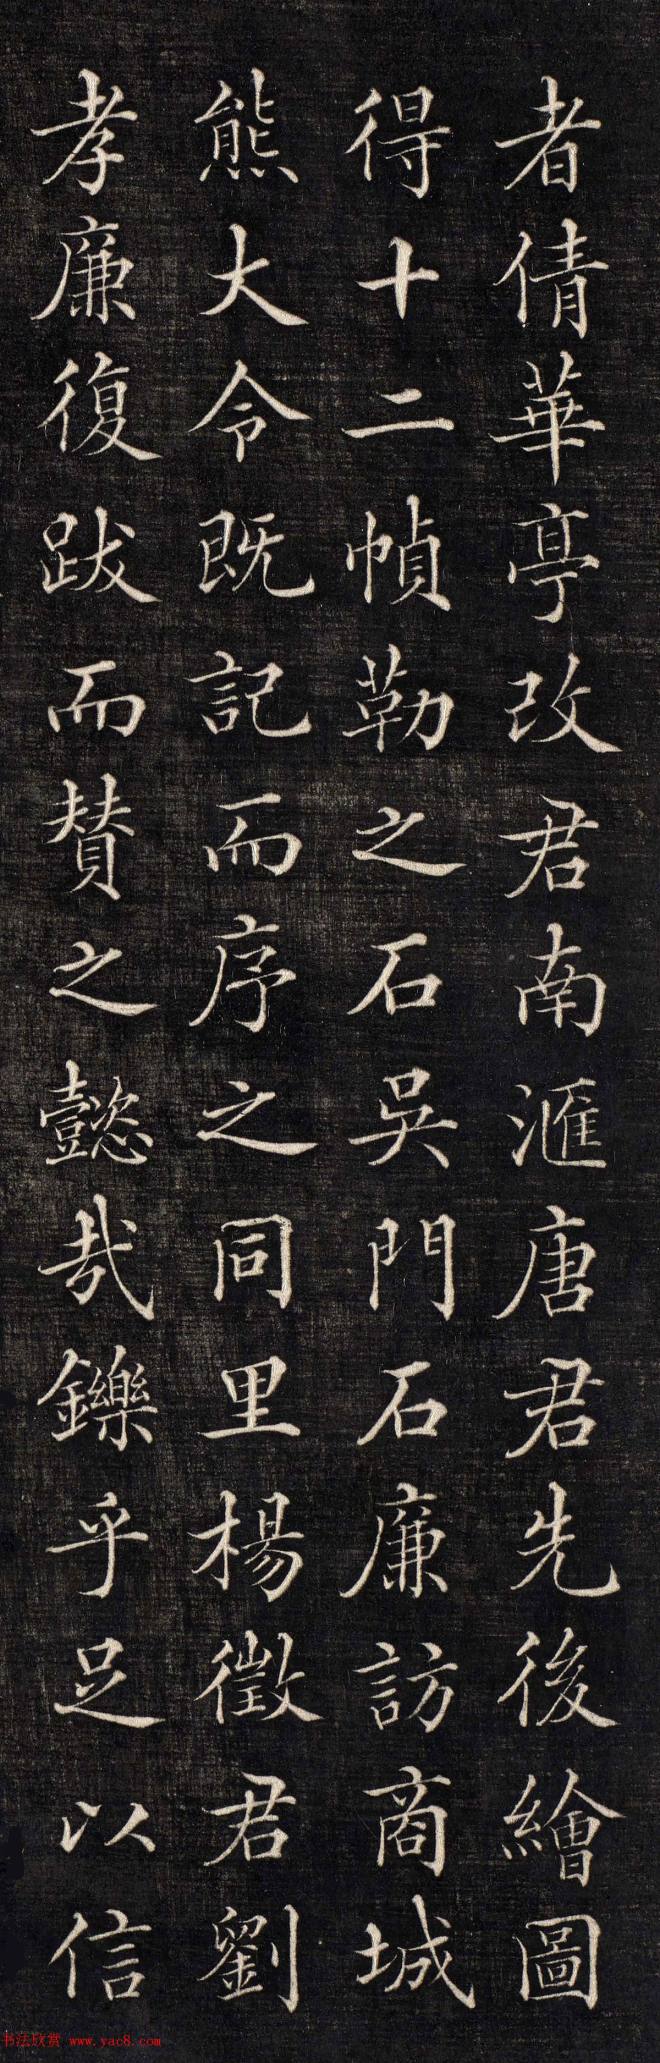 者倩華亭改君南滙唐君先後繪圖
得十二幀勒之石吳門石廉訪商城
熊大令既記而序之同里楊徵君劉
孝廉復跋而贊之懿哉鑠乎足以信
书法欣赏 www.yac8.com